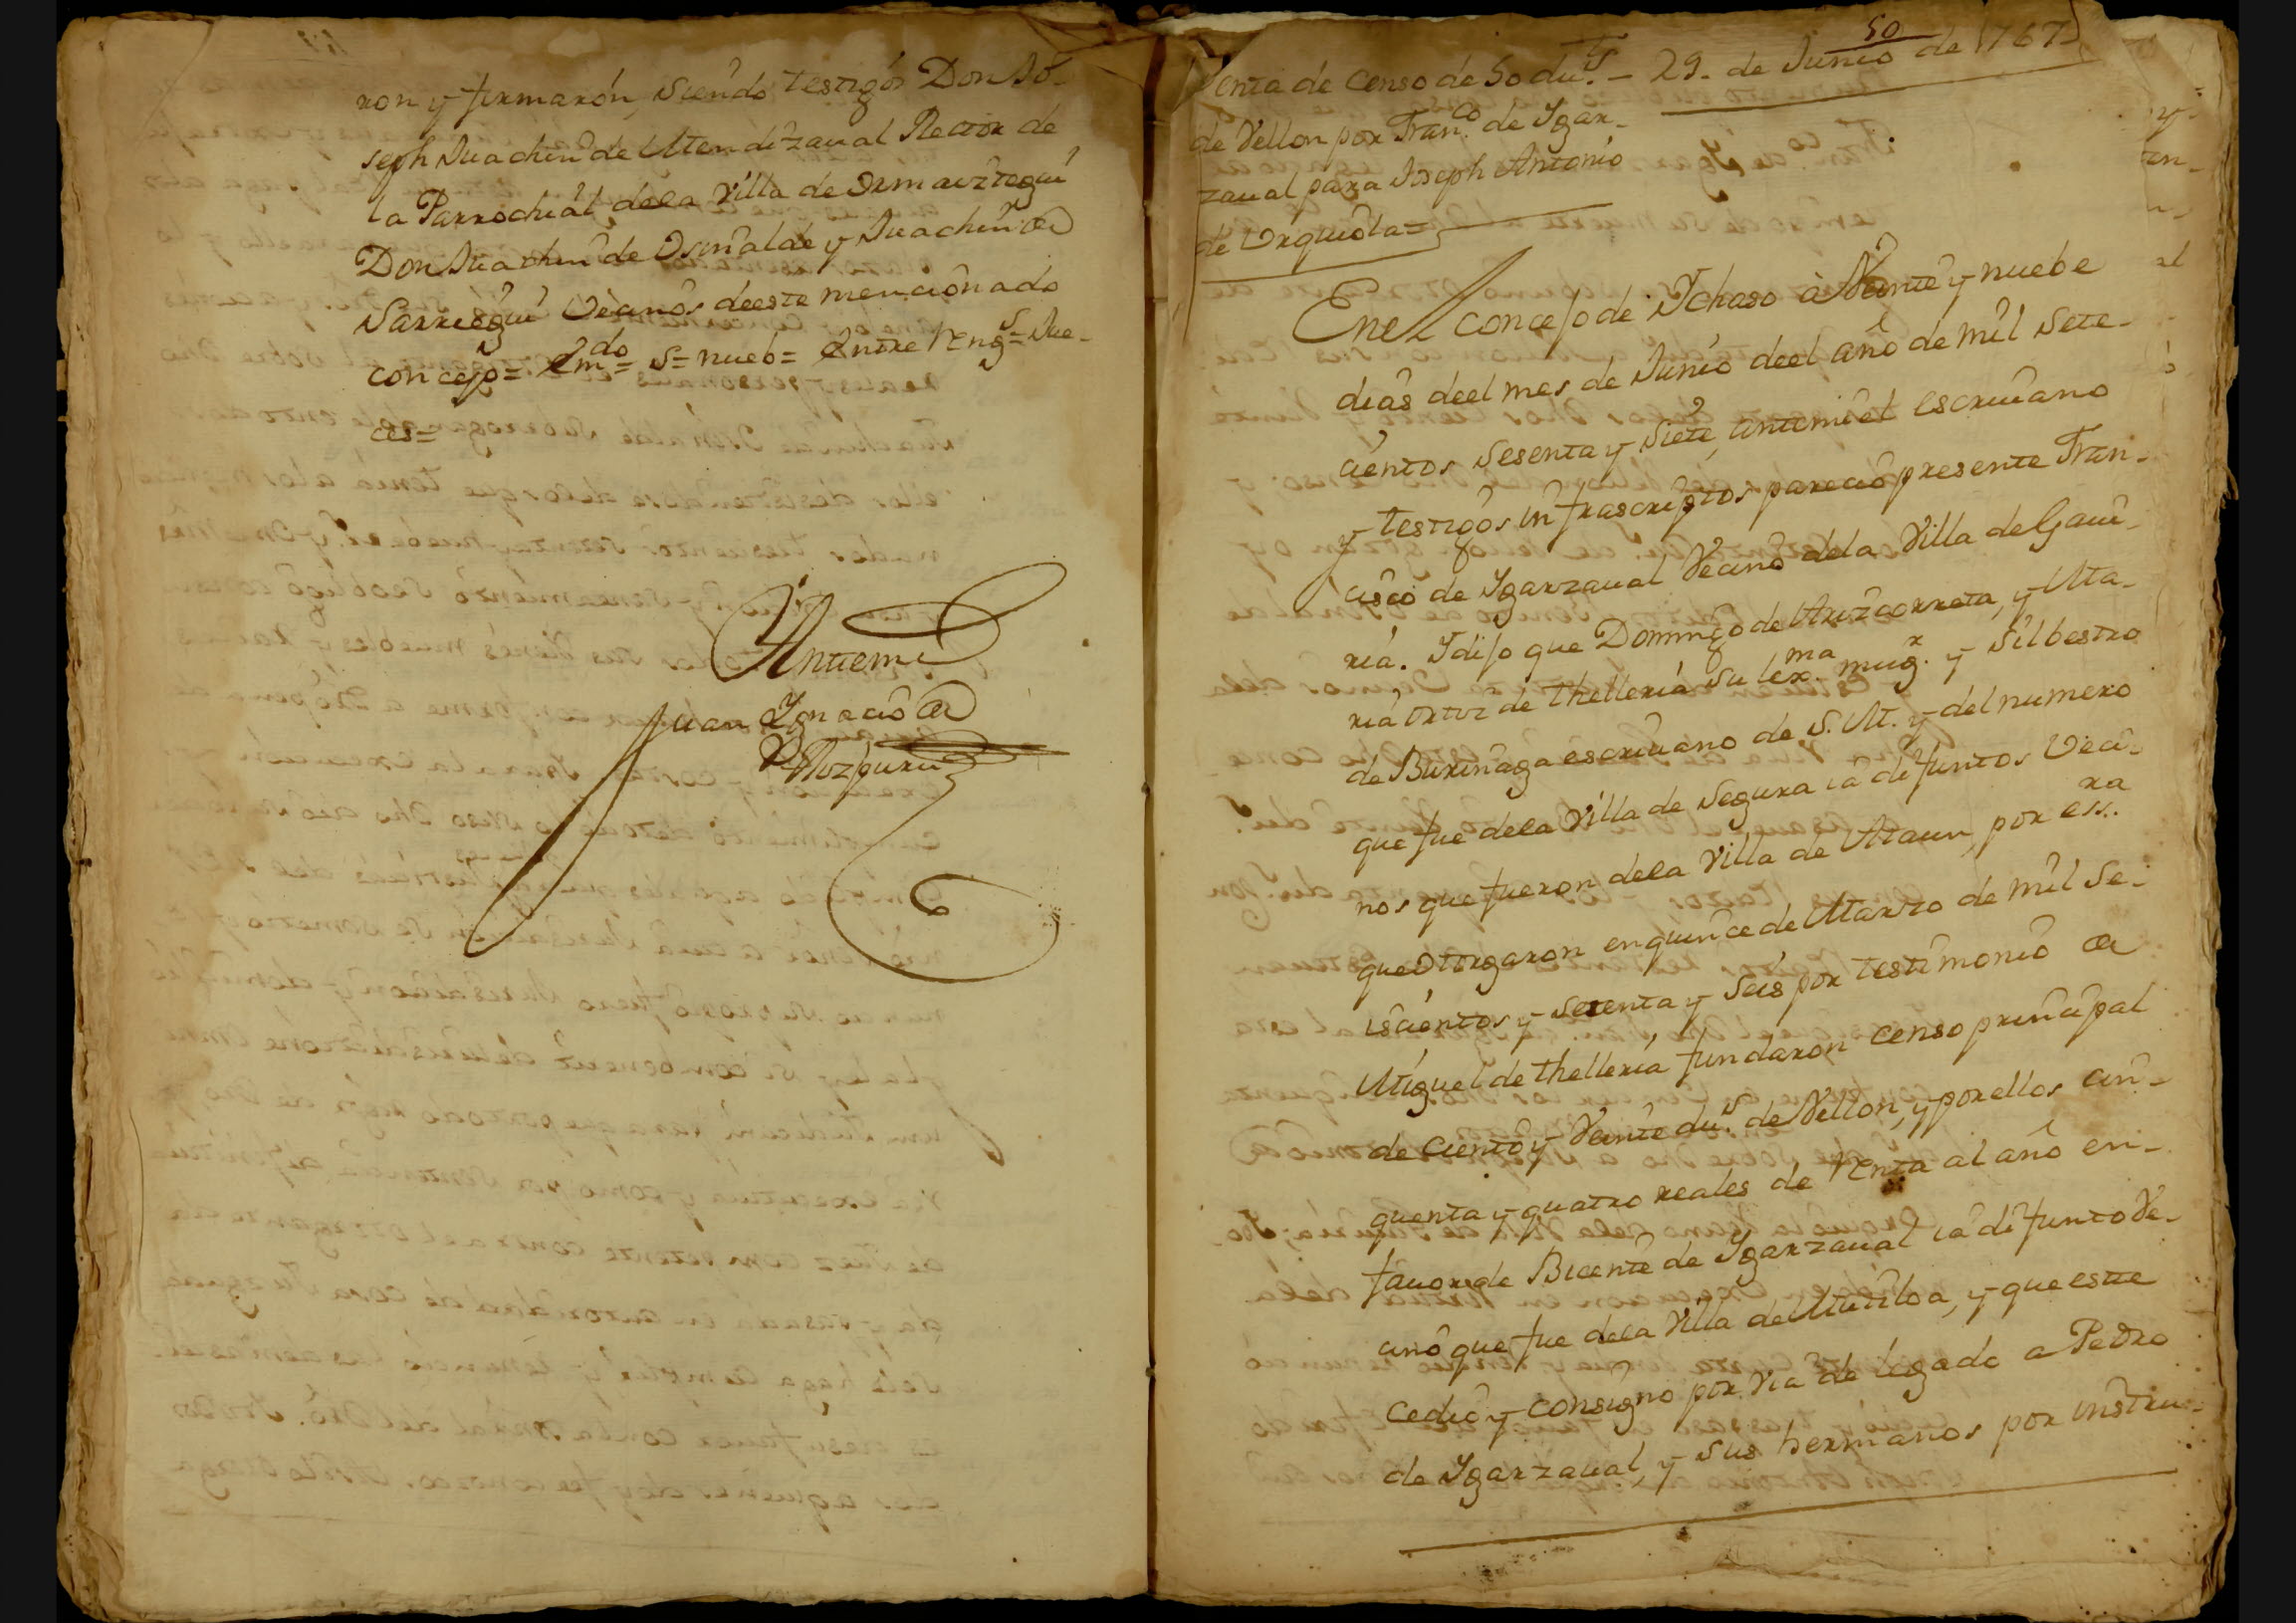 ron y firmarón, siendo testigós Don Jo-
seph Juachin de Mendizaual Rector de
la Parrochiál dela Villa de Ormaiztegui
Don Juachin de Osinalde y Juachin de
Sarriegui Vecinos deeste mencionado
concejo= Em.do= S= nueb= Entre reng.s= Jue-
ces=
Antemi
Juan Ygnacio de
Aizpuru
50
Venta de Censo de 50 du.s - 29. de Junio de 1767
de Vellon por Fran.co de Ygar-
zaual para Joseph Antonio
de Urquiola=
Enel concejo de Ychaso à Veinte y nuebe
dias deel mes de Junio deel año de mil sete-
cientos sesenta y siete, antemi el escriuano
y testigos infrascriptos pareció presente Fran-
cisco de Ygarzaual Vecino dela Villa de Gaui-
ria. Y dijo que Domingo de Arizcorreta, y Ma-
ria Ortiz de thelleria su lex.ma mug.r y Silbestro
de Burinaga escriuano de S. M. y del numero
que fue dela Villa de Segura iá difuntos Veci-
nos que fueron dela Villa de Ataun, por ess.ra
que otorgaron en quince de Marzo de mil se-
iscientos y setenta y seis por testimonio de
Miguel de thelleria, fundaron censo principal
de ciento y Veinte du.s de Vellon, y por ellos cin-
quenta y quatro reales de renta al año en-
fauor de Bicente de Ygarzaual iá difunto Ve-
cino que fue dela Villa de Mutiloa, y que este
cedió y consigno por via de legado a Pedro
de Ygarzaual, y sus hermanos por instru-